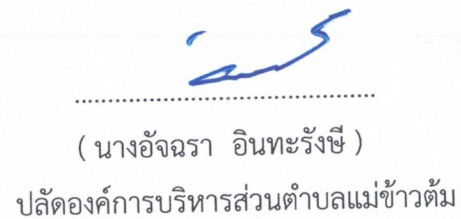 ( นางอัจฉรา อินทะรังษี )
ปลัดองค์การบริหารส่วนตำบลแม่ข้าวต้ม